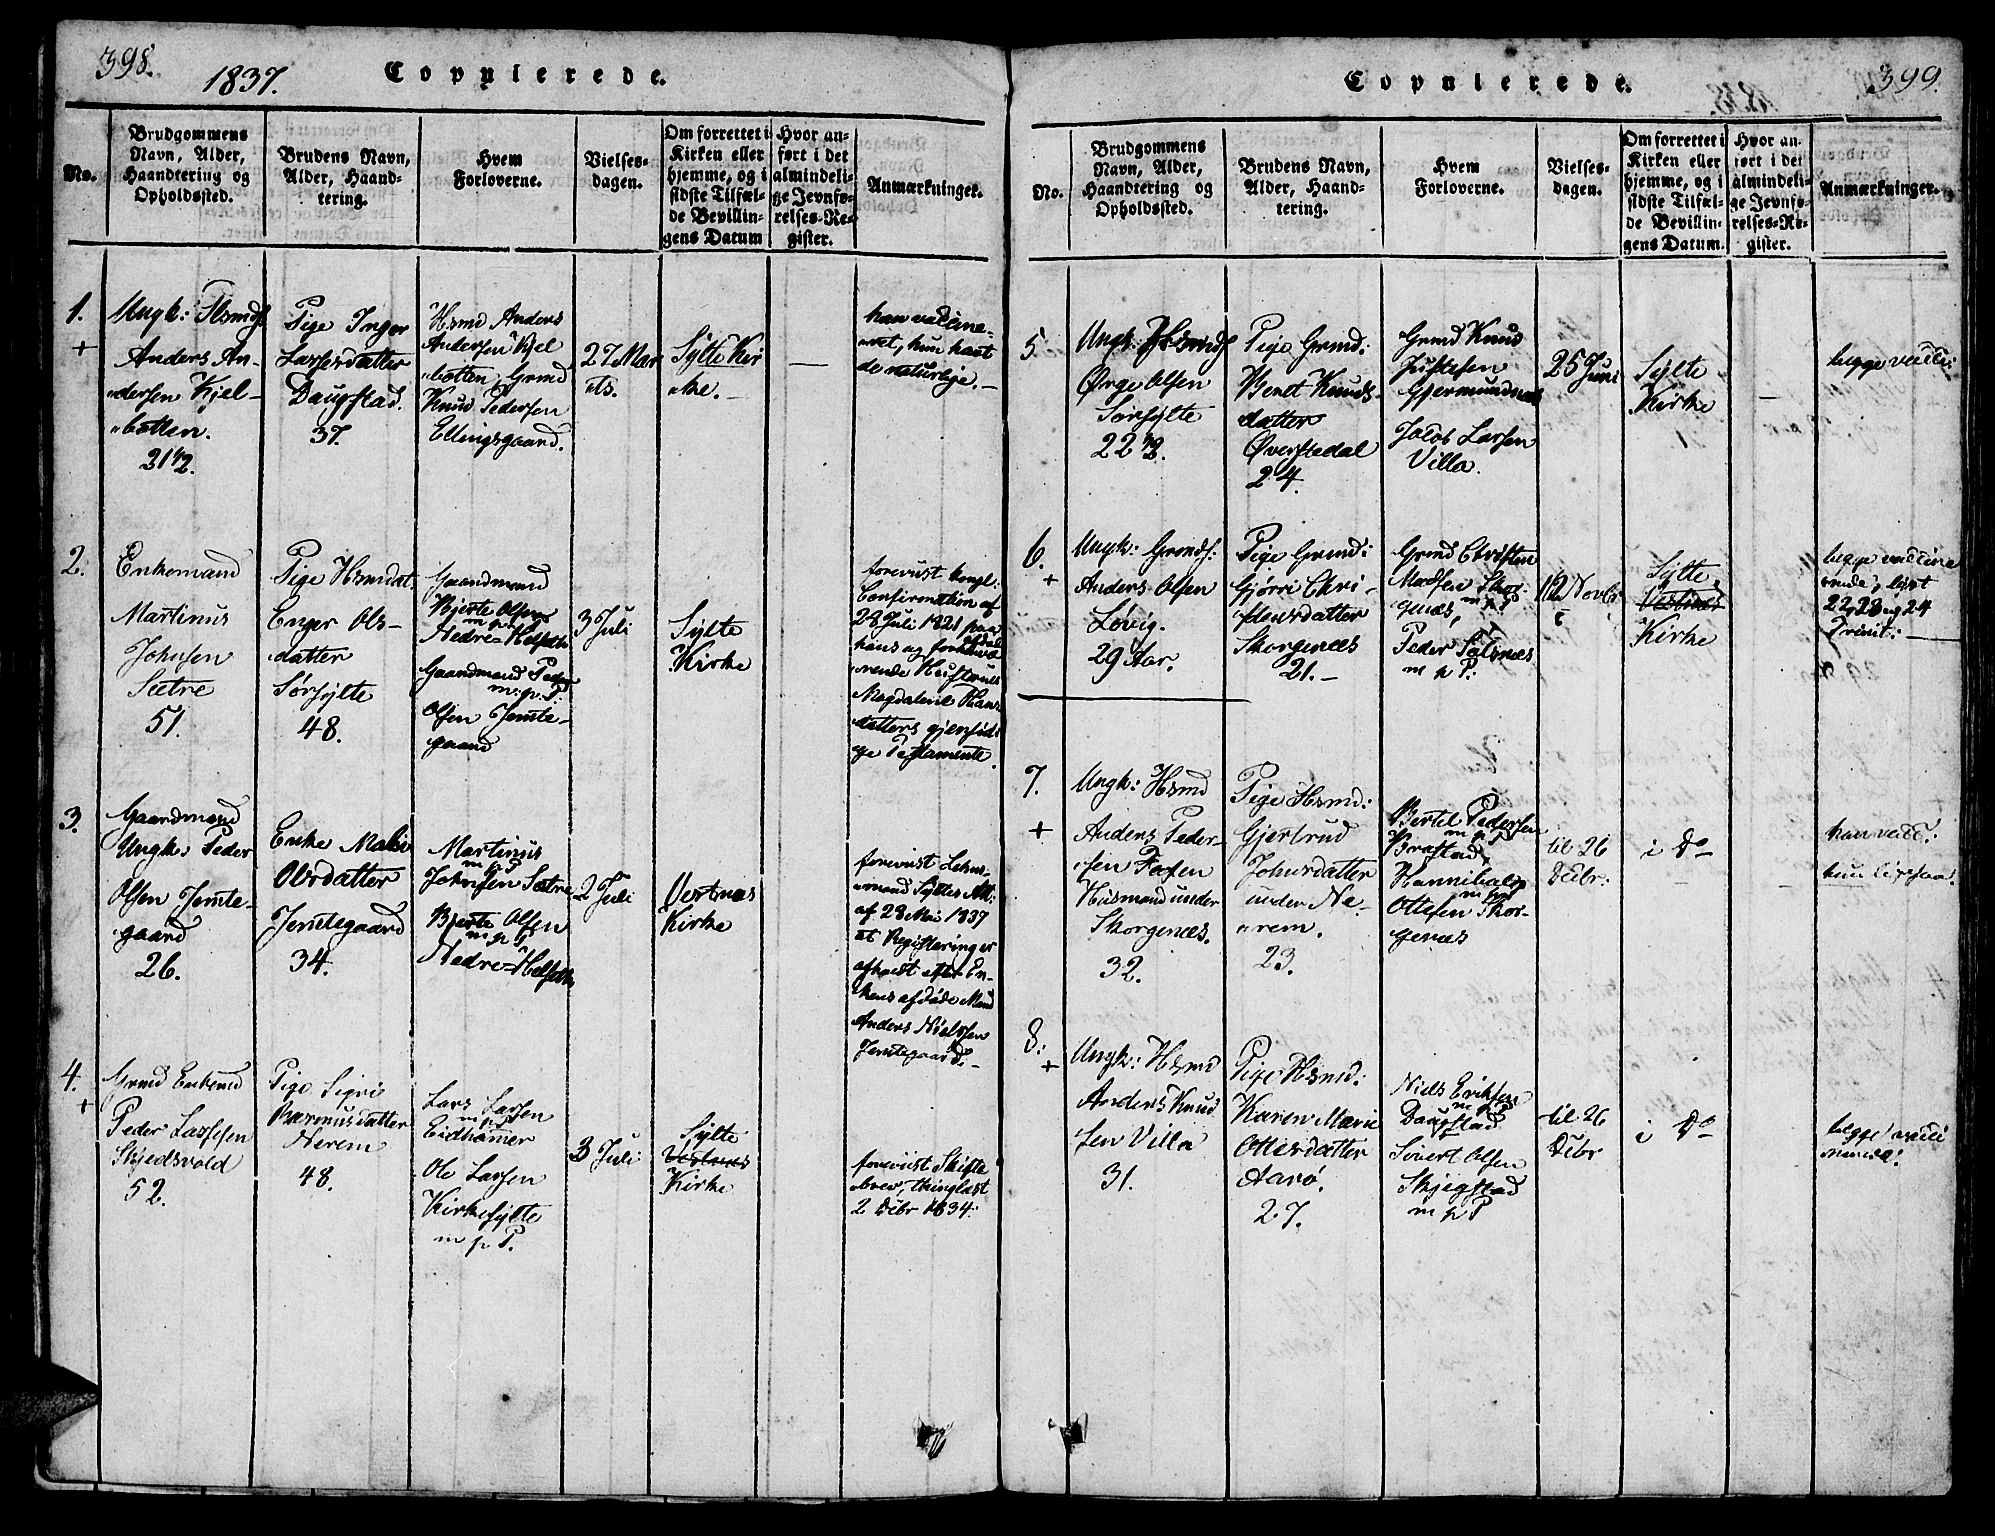 398.
1837.
Copulerede.
No.
Brudgommens
Navn, Alder,
Haandtering og
Opholdssted.
Brudens Navn,
Alder, Haand-
tering.
Hvem
Forloverne.
Vielses-
dagen.
Om forrettet i
Kirken eller
hjemme, og i
sidste Tilfæl-
de Bevillin-
gens Datum
Hvor an-
ført i det
almindeli-
ge Jevnfø-
relses-Re-
gister.
Anmærkninger.
1.
+
Ungk:
Anders An-
dersen Kjel-
botten.
21 1/2.
Pige Inger
Larsesdatter
Daugstad.
37.
Hsmd Anders
Andersen Kjel
botten Grmd
Knud Pedersen
Ellingsgaard.
27 Mar
ts.
Sylte Kir
ke.
—
han vaccine-
ret, hun havt
de naturlige.
2.
Enkemand
Martinus
Johnsen
Sætre
51.
Pige Hsmdat.
Enger Ols-
datter
Sørsylte
48.
Gaardmand
Bjerte Olsen
m. p. P.
Nedre-Helseth
Gaardmand Peder
m. p. P.
Olsen Jemte-
gaard
3 Juli
Sylte
Kirke
forevist kongl:
Confirmation af
28 Juli 1821 paa
hans og forhenvæ
rende Hustrues
Magdalene Hans
datters gjensidi
ge Testamente.
3.
Gaardmand
Ungk: Peder
Olsen Jemte-
gaard
26.
Enke Mali
Olsdatter
Jemtegaard
34.
Martinus
m p P
Johnsen Sætre
Bjerte Olsen
m p P
Nedre-Helseth
2 Juli
Vestnæs
Kirke
forevist Lehns-
mand Syltes Att:
af 28 Mai 1837
at Registeringer
afholdt efter En-
kens afdøde Mand
Anders Nielsen
Jemtegaard.
4.
+
Grmd Enkemd
Peder Larsen
Skjedsvold
52.
Pige Sigri
Rasmusdatter
Nerem
48.
Lars Larsen
m p P
Eidhamer
Ole Larsen
Kirkesylte
m p P.
3 Juli
Sylte
Vestnæs
Kirke
forevist Skifte
brev, thinglæst
2 Decbr 1834:
399.
Copulerede.
No.
Brudgommens
Navn, Alder,
Haandtering og
Opholdssted.
Brudens Navn,
Alder, Haand-
tering.
Hvem
Forloverne.
Vielses-
dagen.
Om forrettet i
Kirken eller
hjemme, og i
sidste Tilfæl-
de Bevillin-
gens Datum.
Hvor an-
ført i det
almindeli-
ge Jevnfø-
relses-Re-
gister.
Anmærkninger.
5.
Ungk. Hsmds
Ørge Olsen
Sørsylte
22 1/2.
Pige Grmd:
Beret Knuds-
datter
Øverstedal
24.
Grmd Knud
Justesen
Gjermundnæs
Jacob Larsen
Villa.
25 Juni
Sylte
Kirke
—
begge vacci:
6.
+
Ungk: Grmds:
Anders Olsen
Løvig.
29 Aar.
Pige Grmd:
Gjørri Chri-
stensdatter
Skorgenæs
21.
Grmd Christen
Madsen Skor-
genæs, m p P
Peder
m p P.
12 Novbr
Sylte
Vestnæs
Kirke
begge vaccine
rende; lyst
22, 23 og 24
Trinit:
7.
+
Ungk: Hsmd
Anders Peder-
sen
Husmand under
Skorgenæs.
32.
Pige Hsmd:
Gjertrud
Johnsdatter
under Ne-
rem.
23.
Bertel Pedersen
m p P
Brastad
Hannibal
m p P
Ottesen Skor-
genæs
til 26
Decbr:
i Do
—
han vacc:
hun ligesaa.
8:
+
Ungk: Hsmd
Anders Knud
sen Villa
31.
Pige Hsmd:
Karen Marie
Ottersdatter
Aarø.
27.
Niels Eriksen
m p P
Daugstad
Sivert Olsen
Skjegstad
m p P
til 26
Decbr
i Do
begge vacci
nerede.